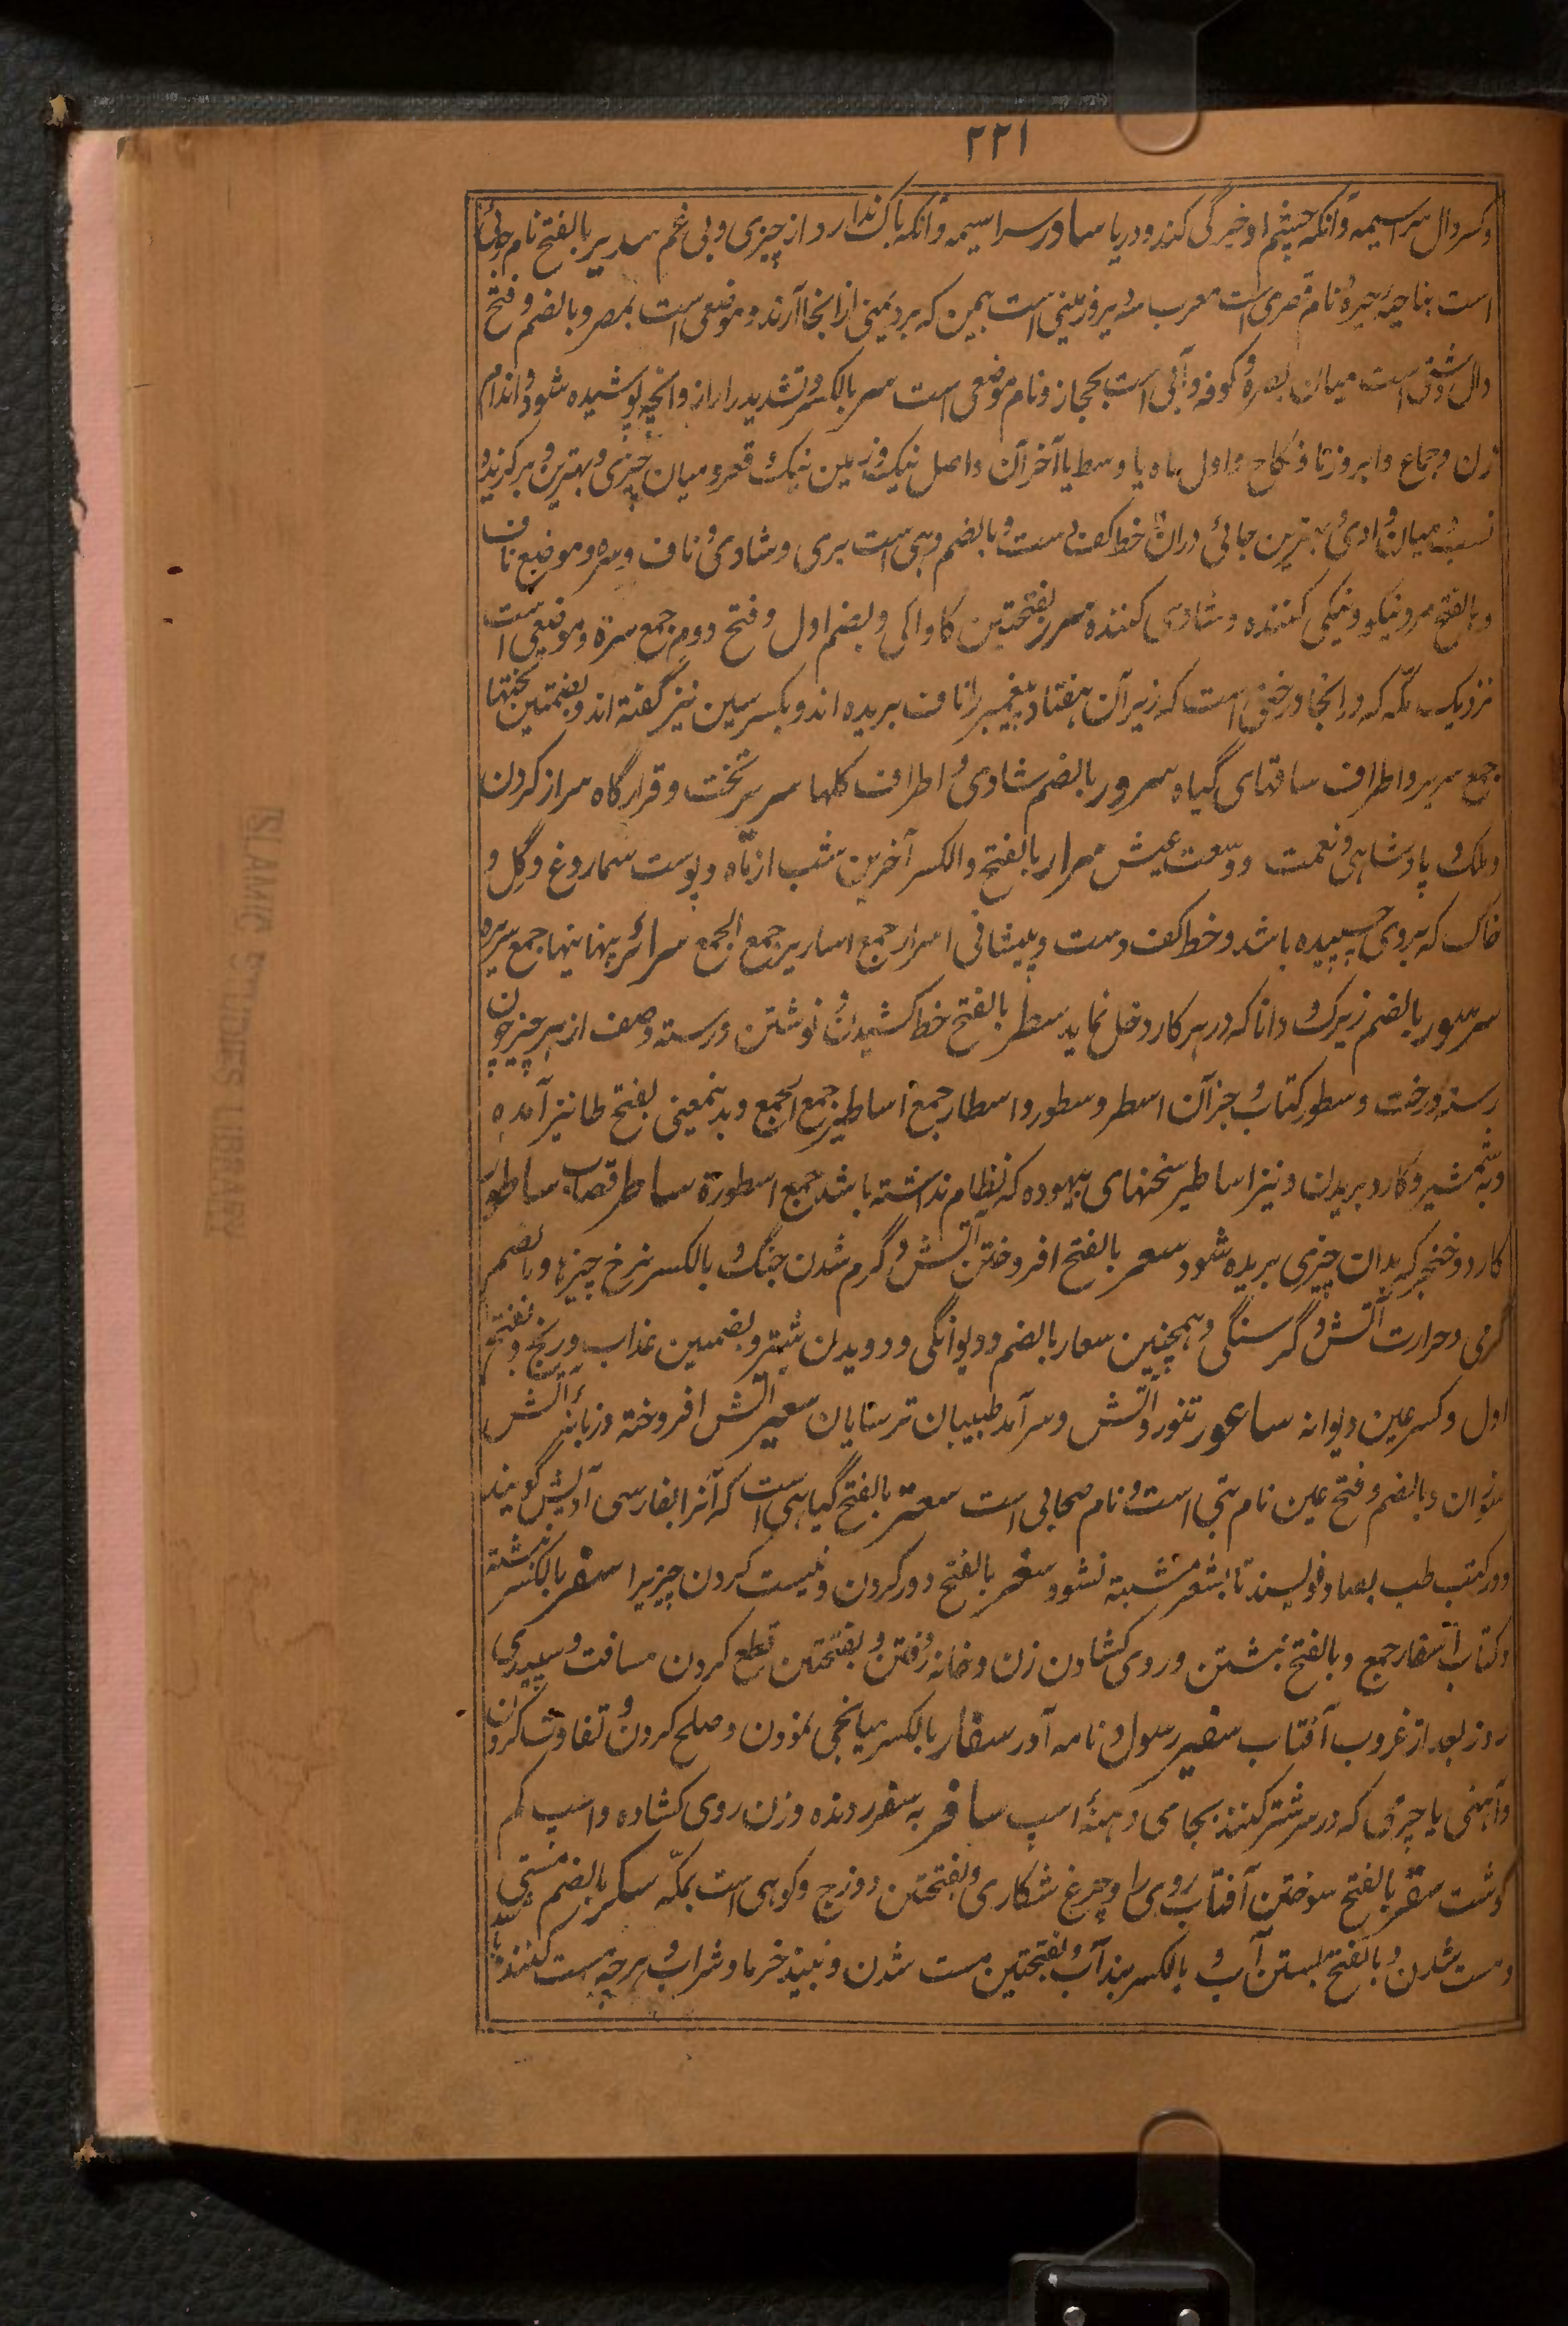 ۲۲۱
وکسر دال سراسیمه و آنکه چشم او خیرگی کند و دریا سادر سراسیمه و آنکه باک ندارد از چیزی و بی غم سدیر بالفتح نام جوئی
است بناحیه حیره و نام قصری است معرب سه دیر و زمینی است بیمن که برد یمنی از انجا آرند و موضعی است بمصر و بالضم و فتح
دال دشتی است میان بصره و کوفه و آبی است بحجاز و نام موضعی است سر بالکسر و تشدید را راز و انچه پوشیده شود و اندام
زن و جماع و ابروز تا و نکاح و اول ماه یا وسط یا آخر آن و اصل نیک و زمین نیک قعر و میان چیزی و بهترین و برگزیده
نسب و میان وادی و بهترین جائی دران و خط کف دست و بالضم دهی است بری و شادی و ناف و سره و موضع ناف
و بالفتح مرد نیکو و نیکی کننده و شادی کننده سرر بفتحتین کاواکی و بضم اول و فتح دوم جمع سرة و موضعی است
نزدیک مکّه که درانجا درختی است که زیر آن هفتاد پیغمبر را ناف بریده اند و بکسر سین نیز گفته اند و بضمتین تختها
جمع سریر و اطراف ساقهای گیاه سرور بالضم شادی و اطراف گلها سریر تخت و قرارگاه سر از گردن
و ملک و پادشاهی و نعمت و وسعت عیش سرار بالفتح و الکسر آخرین شب از ماه و پوست سماروغ و گِل و
خاک که بروی چسپیده باشد و خط کف دست و پیشانی اسرار جمع اساریر جمع الجمع سرائر پنهانیها جمع سریره
سرسور بالضم زیرک و دانا که در هر کار دخل نماید سطر بالفتح خط کشیدن و نوشتن و رسته و صف از هر چیز چون
رسته درخت و سطور کتاب و جز آن اسطر و سطور و اسطار جمع اساطیر جمع الجمع و بدینمعنی بفتح طا نیز آمده
و بشمشیر و کارد بریدن و نیز اساطیر سخنهای بیهوده که نظام نداشته باشد جمع اسطورة ساطر قصاب ساطور
کارد و خنجر که بدان چیزی بریده شود سعر بالفتح افروختن آتش و گرم شدن جنگ و بالکسر نرخ چیزها و بالضم
گرمی و حرارت آتش و گرسنگی و همچنین سعار بالضم و دیوانگی و دویدن شتر و بضمتین عذاب و رنج و بفتح
اول و کسر عین دیوانه ساعور تنور و آتش و سرآمد طبیبان ترسایان سعیر آتش افروخته و زبانهٔ آتش
سوزان و بالضم و فتح عین نام بتی است و نام صحابی است سعتر بالفتح گیاهی است که آنرا بفارسی آدیش گویند
و در کتب طب بصاد نویسند تا بشعر مشتبه نشود سغر بالفتح دور کردن و نیست کردن چیزیرا سفر بالکسر نبشته
و کتاب اسفار جمع و بالفتح نبشتن و روی کشادن زن و خانه رُفتن و بفتحتین قطع کردن مسافت و سپیدی
روز بعد از غروب آفتاب سفیر رسول و نامه آور سفار بالکسر میانجی نمودن و صلح کردن و تفاوت کردن
و آهنی یا چرمی که در سر شتر کنند بجای دهنهٔ اسپ سافر به سفر رونده و زن روی کشاده و اسپ کم
گوشت سقر بالفتح سوختن آفتاب روی را و چرغ شکاری و بفتحتین دوزخ و کوهی است بمکّه سکر بالضم مستی
و مست شدن و بالفتح بستن آب و بالکسر بند آب و بفتحتین مست شدن و نبیذ خرما و شراب و هرچه مست کننده
ISLAMIC STUDIES LIBRARY